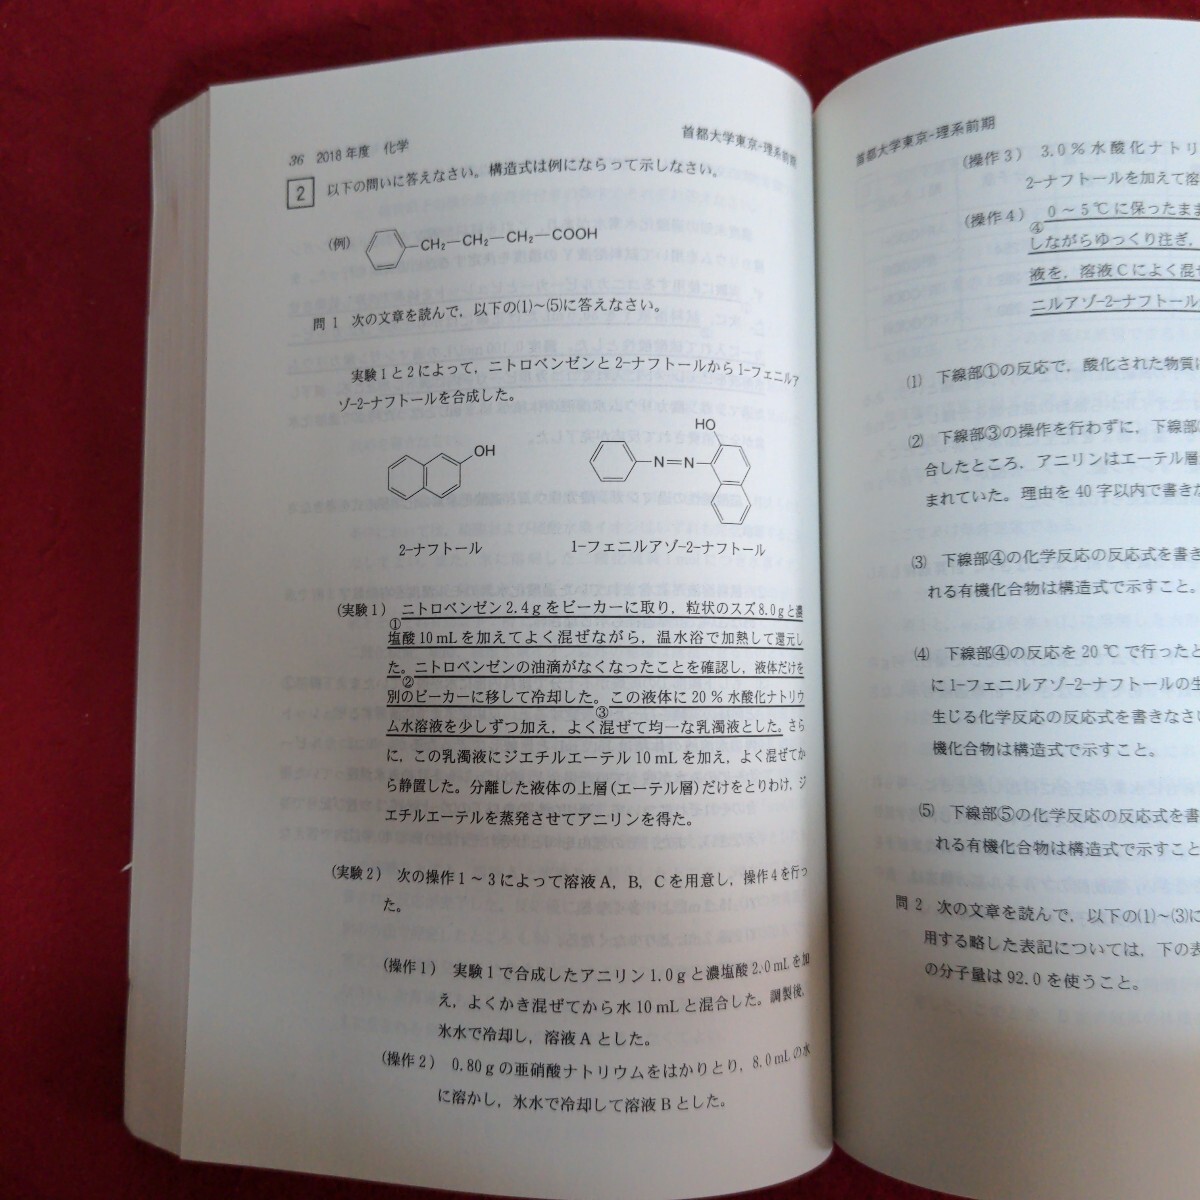 36 2018年度 化学
首都大学東京-理系前期
2 以下の問いに答えなさい。構造式は例にならって示しなさい。
(例)
CH₂—CH₂—CH₂—COOH
問1 次の文章を読んで，以下の(1)～(5)に答えなさい。
実験1と2によって，ニトロベンゼンと2-ナフトールから1-フェニルア
ゾ-2-ナフトールを合成した。
OH
HO
N=N
2-ナフトール
1-フェニルアゾ-2-ナフトール
(実験1) ニトロベンゼン2.4gをビーカーに取り，粒状のスズ8.0gと濃
①
塩酸10mLを加えてよく混ぜながら，温水浴で加熱して還元し
た。ニトロベンゼンの油滴がなくなったことを確認し，液体だけを
②
別のビーカーに移して冷却した。この液体に20％水酸化ナトリウ
③
ム水溶液を少しずつ加え，よく混ぜて均一な乳濁液とした。さら
に，この乳濁液にジエチルエーテル10mLを加え，よく混ぜてか
ら静置した。分離した液体の上層(エーテル層)だけをとりわけ，ジ
エチルエーテルを蒸発させてアニリンを得た。
(実験2) 次の操作1～3によって溶液A，B，Cを用意し，操作4を行っ
た。
(操作1) 実験1で合成したアニリン1.0gと濃塩酸2.0mLを加
え，よくかき混ぜてから水10mLと混合した。調製後，
氷水で冷却し，溶液Aとした。
(操作2) 0.80gの亜硝酸ナトリウムをはかりとり，8.0mLの水
に溶かし，氷水で冷却して溶液Bとした。
首都大学東京-理系前期
(操作3) 3.0％水酸化ナトリ
2-ナフトールを加えて溶
(操作4) 0～5℃に保ったまま
④
しながらゆっくり注ぎ，
液を，溶液Cによく混ぜ
ニルアゾ-2-ナフトール
(1) 下線部①の反応で，酸化された物質
(2) 下線部③の操作を行わずに，下線部
合したところ，アニリンはエーテル層
まれていた。理由を40字以内で書きな
(3) 下線部④の化学反応の反応式を書き
れる有機化合物は構造式で示すこと。
(4) 下線部④の反応を20℃で行ったと
に1-フェニルアゾ-2-ナフトールの生
生じる化学反応の反応式を書きなさい
機化合物は構造式で示すこと。
(5) 下線部⑤の化学反応の反応式を書
れる有機化合物は構造式で示すこと
問2 次の文章を読んで，以下の(1)～(3)に
用する略した表記については，下の表
の分子量は92.0を使うこと。